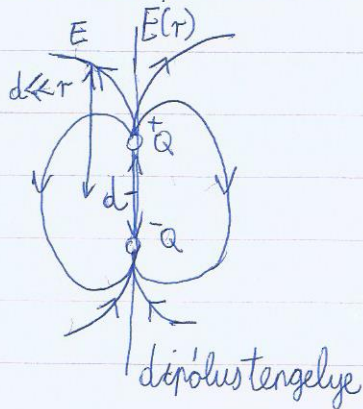 E E(r)
d≪r
+Q
d
-Q
dipólus tengelye